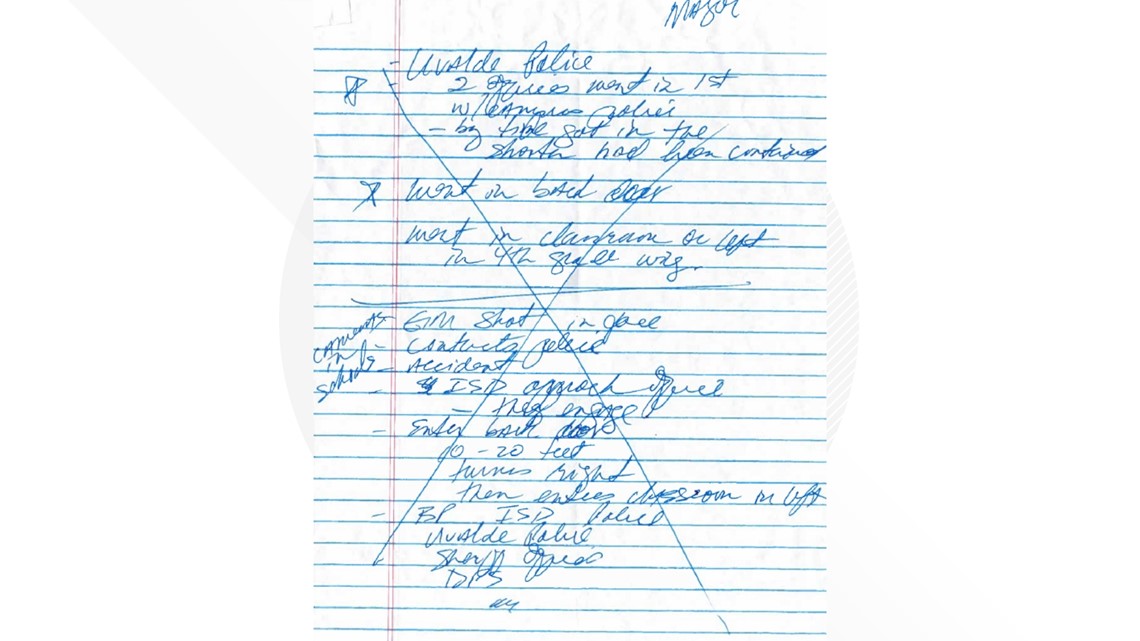 Mayor
- Uvalde Police
2 officers went in 1st
w/campus police
- by time got in the
shooter had been contained
went in back door
went in classroom on left
in 4th grade wing.
cameras
in
schools
- GM Shot in face
- Contacts police
- Accident
- ISD approach officer
- they engage
- Enter back door
10-20 feet
turns right
then enters classroom on left
- BP ISD Police
Uvalde Police
Sheriff Office
DPS